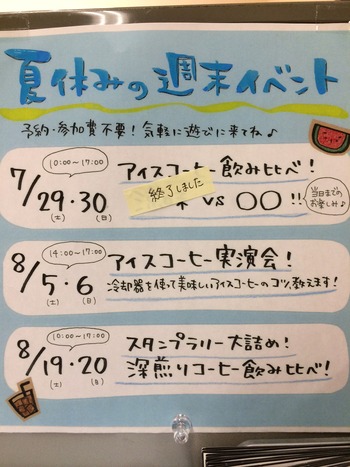 夏休みの週末イベント
予約・参加費不要！気軽に遊びに来てね♪
10:00～17:00
7/29・30
(土) (日)
アイスコーヒー飲み比べ！
終了しました
vs ○○ !!
当日までのお楽しみ♪
14:00～17:00
8/5・6
(土) (日)
アイスコーヒー実演会！
冷却器を使って美味しいアイスコーヒーのコツ、教えます！
10:00～17:00
8/19・20
(土) (日)
スタンプラリー大詰め！
深煎りコーヒー飲み比べ！